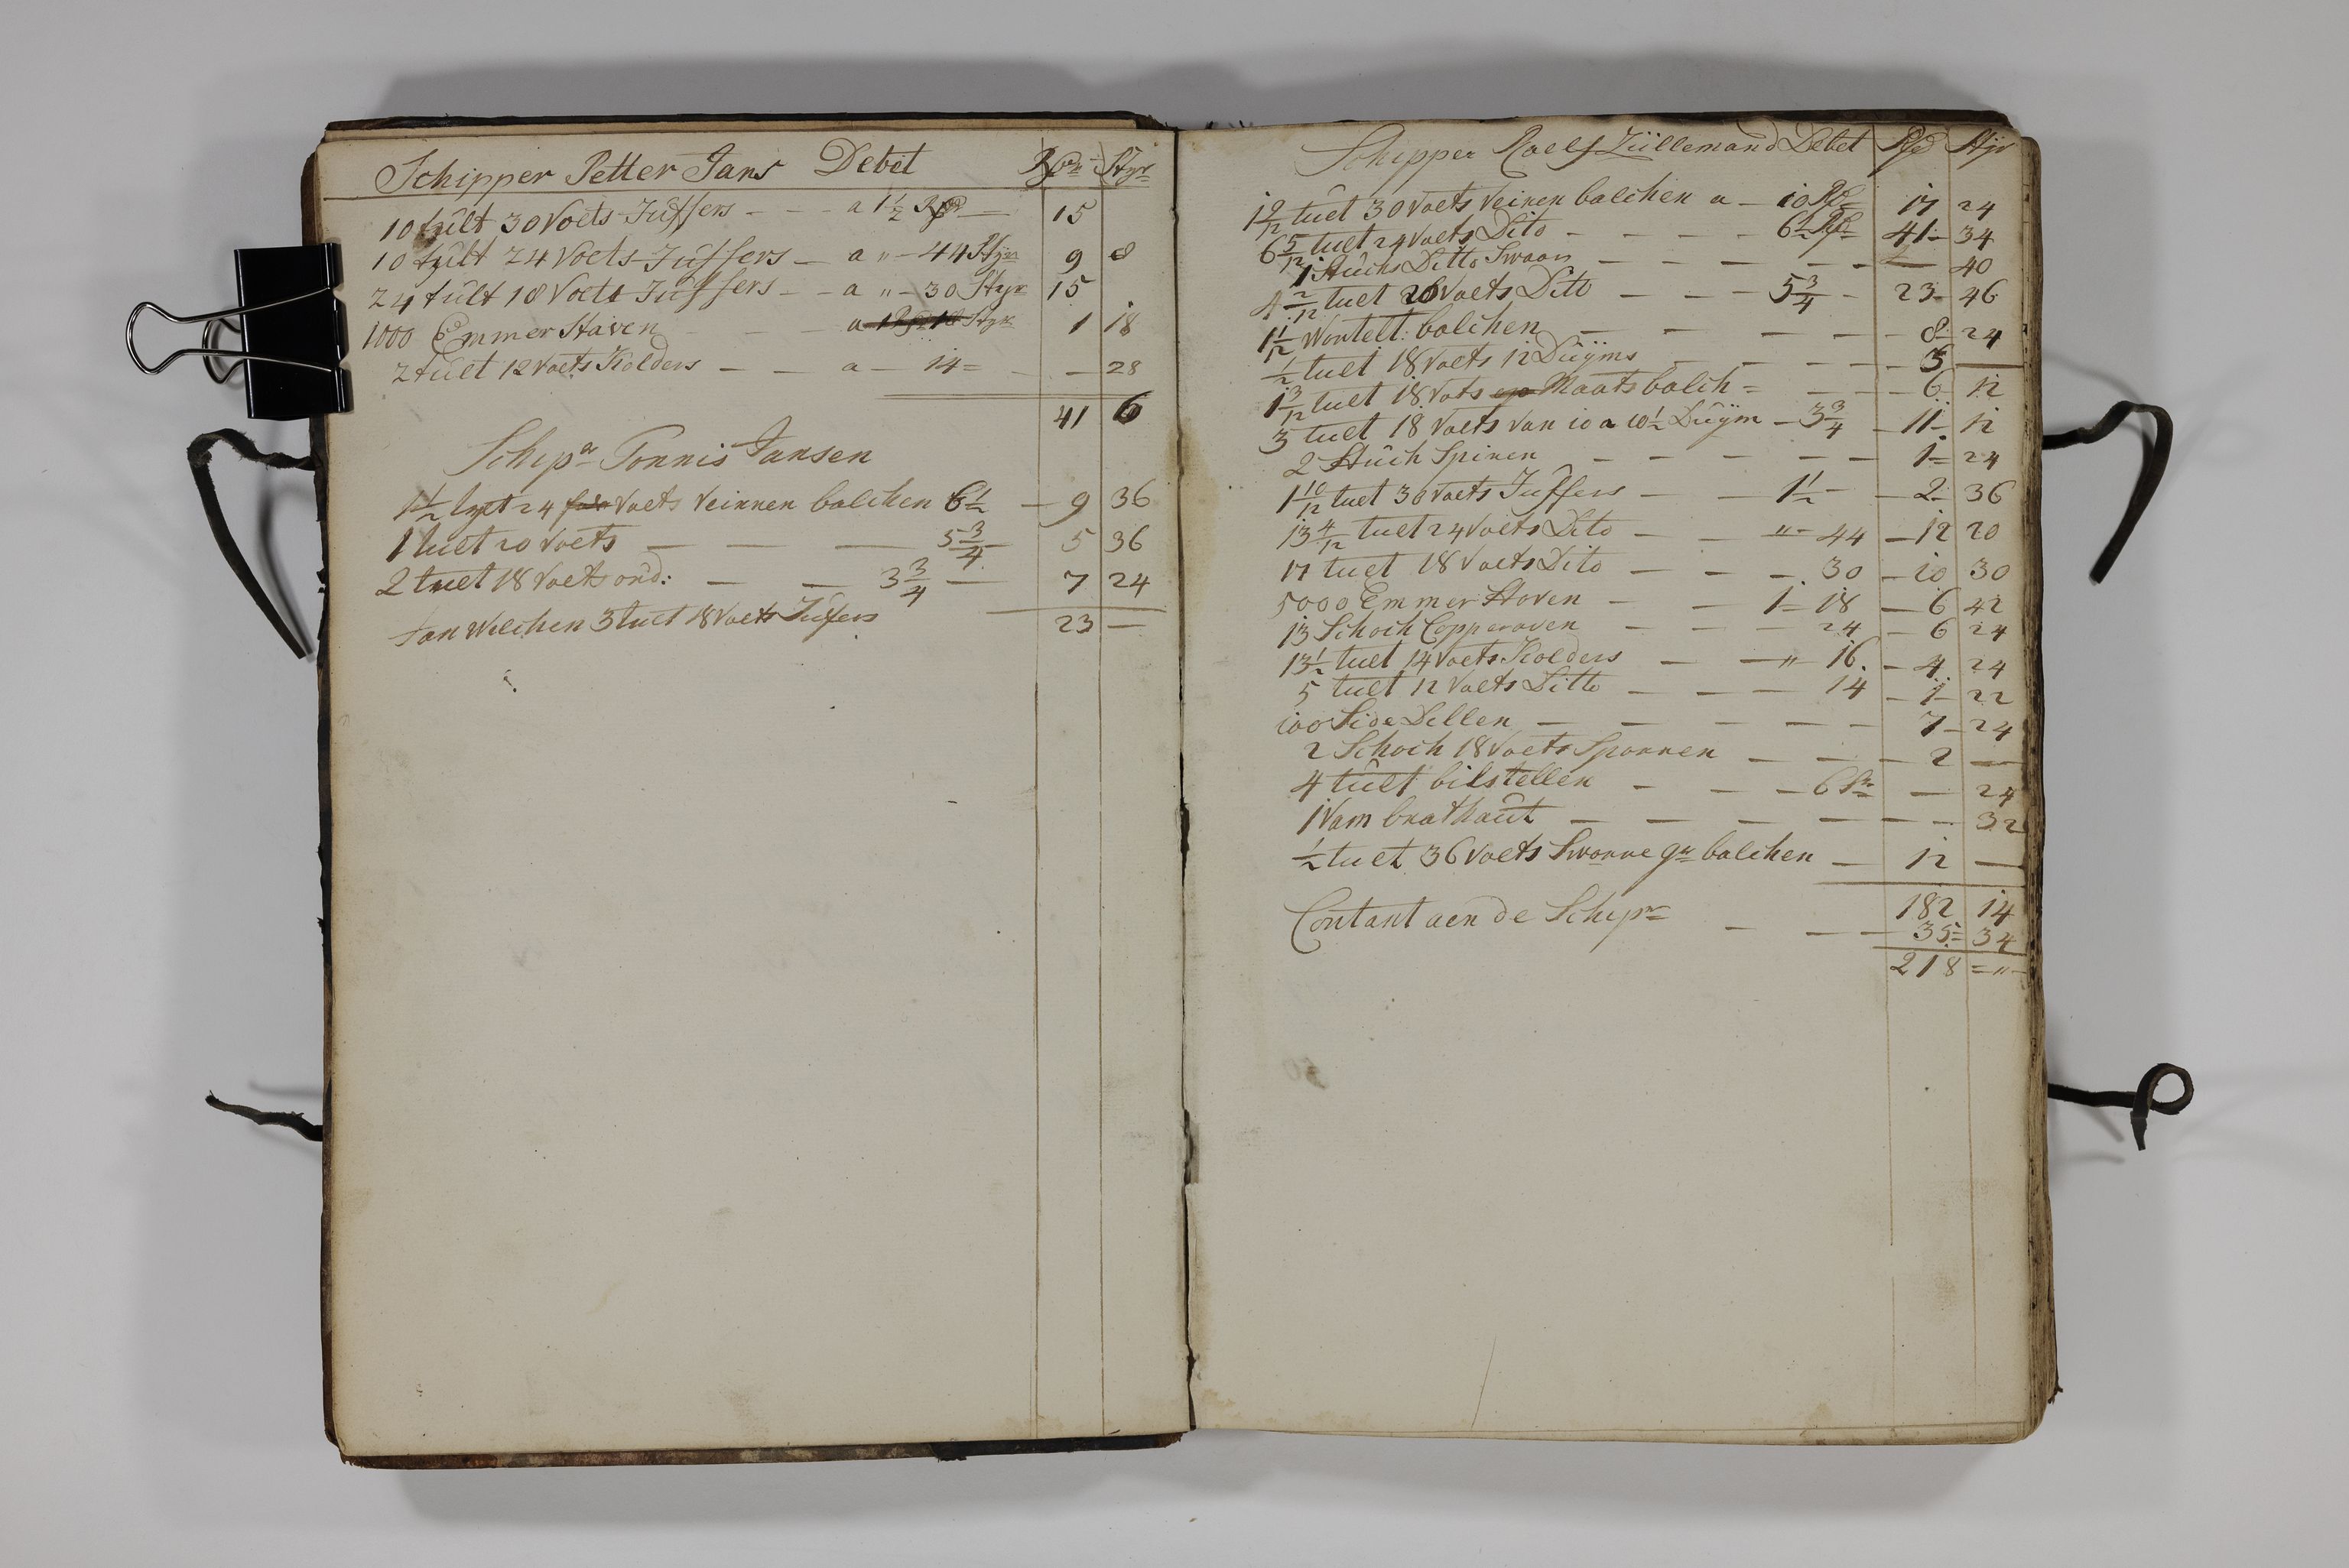 Schipper Petter Jans Debet Styr
10 tült 30 Voets Jüffers - - - a 1 1/2 15
10 tült 24 Voets Jüffers - a " - 44 Styr 9 8
24 tült 18 Voets Jüffers - - a " - 30 Styr 15
1000 Emmer Staven - - - a 1 18
2 tült 12 Voets Kolders - - a - 14 = - 28
41 6
Schipr Tonnis Jansen
1 1/2 tuet 24 Voets Veinnen balchen 6 1/2 - 9 36
1 tuet 20 Voets - - - 5 3/4 5 36
2 tuet 18 Voets ond: - - 3 3/4 - 7 24
Jan Wilchen 3 tuet 18 Voets Jüfers 23 -
Schipper Roelf Züllemand Debet Styr
1 9/12 tuet 30 Voets Veinen balchen a - 10 17 24
6 5/12 tuet 24 Voets Dito - - - - 6 1/2 41 - 34
1 Stücks Ditto Swaar - - - - - 40
4 2/12 tuet 20 Voets Ditt - - - 5 3/4 - 23 - 46
1 1/12 Wontelt: balchen - - - - 8 - 24
1/2 tuet 18 Voets 12 Düyms - - - - 5 -
1 3/12 tuet 18 Vots Maats balch = - - - 6 12
3 tuet 18 Voets van 10 a 10 1/2 Düym - 3 3/4 - 11 - 12
2 Stüch Spiren - - - - - 1 - 24
1 10/12 tuet 30 Voets Juffers - - 1 1/2 - 2 - 36
13 4/12 tuet 24 Voets Dito - - " - 44 - 12 20
17 tuet 18 Voets Dito - - - 30 - 10 30
5000 Emmer Stoven - - 1 - 18 - 6 42
13 Schoch - - - 24 - 6 24
13 1/2 tuet 14 Voets Kolders - - " 16 - 4 24
5 tuet 12 Voets Ditto - - - 14 - 1 - 22
100 Side Dellen - - - - - 7 - 24
2 Schoch 18 Voets Sparren - - - 2 -
4 tült bilstellen - - - 6 - 24
1 Vam brathaüt - - - - - - 32
1/2 tuet 36 Voets Swanne gr balchen - 12 -
182 14
Contant aen de Schipr - - - 35 = 34
218 = " -